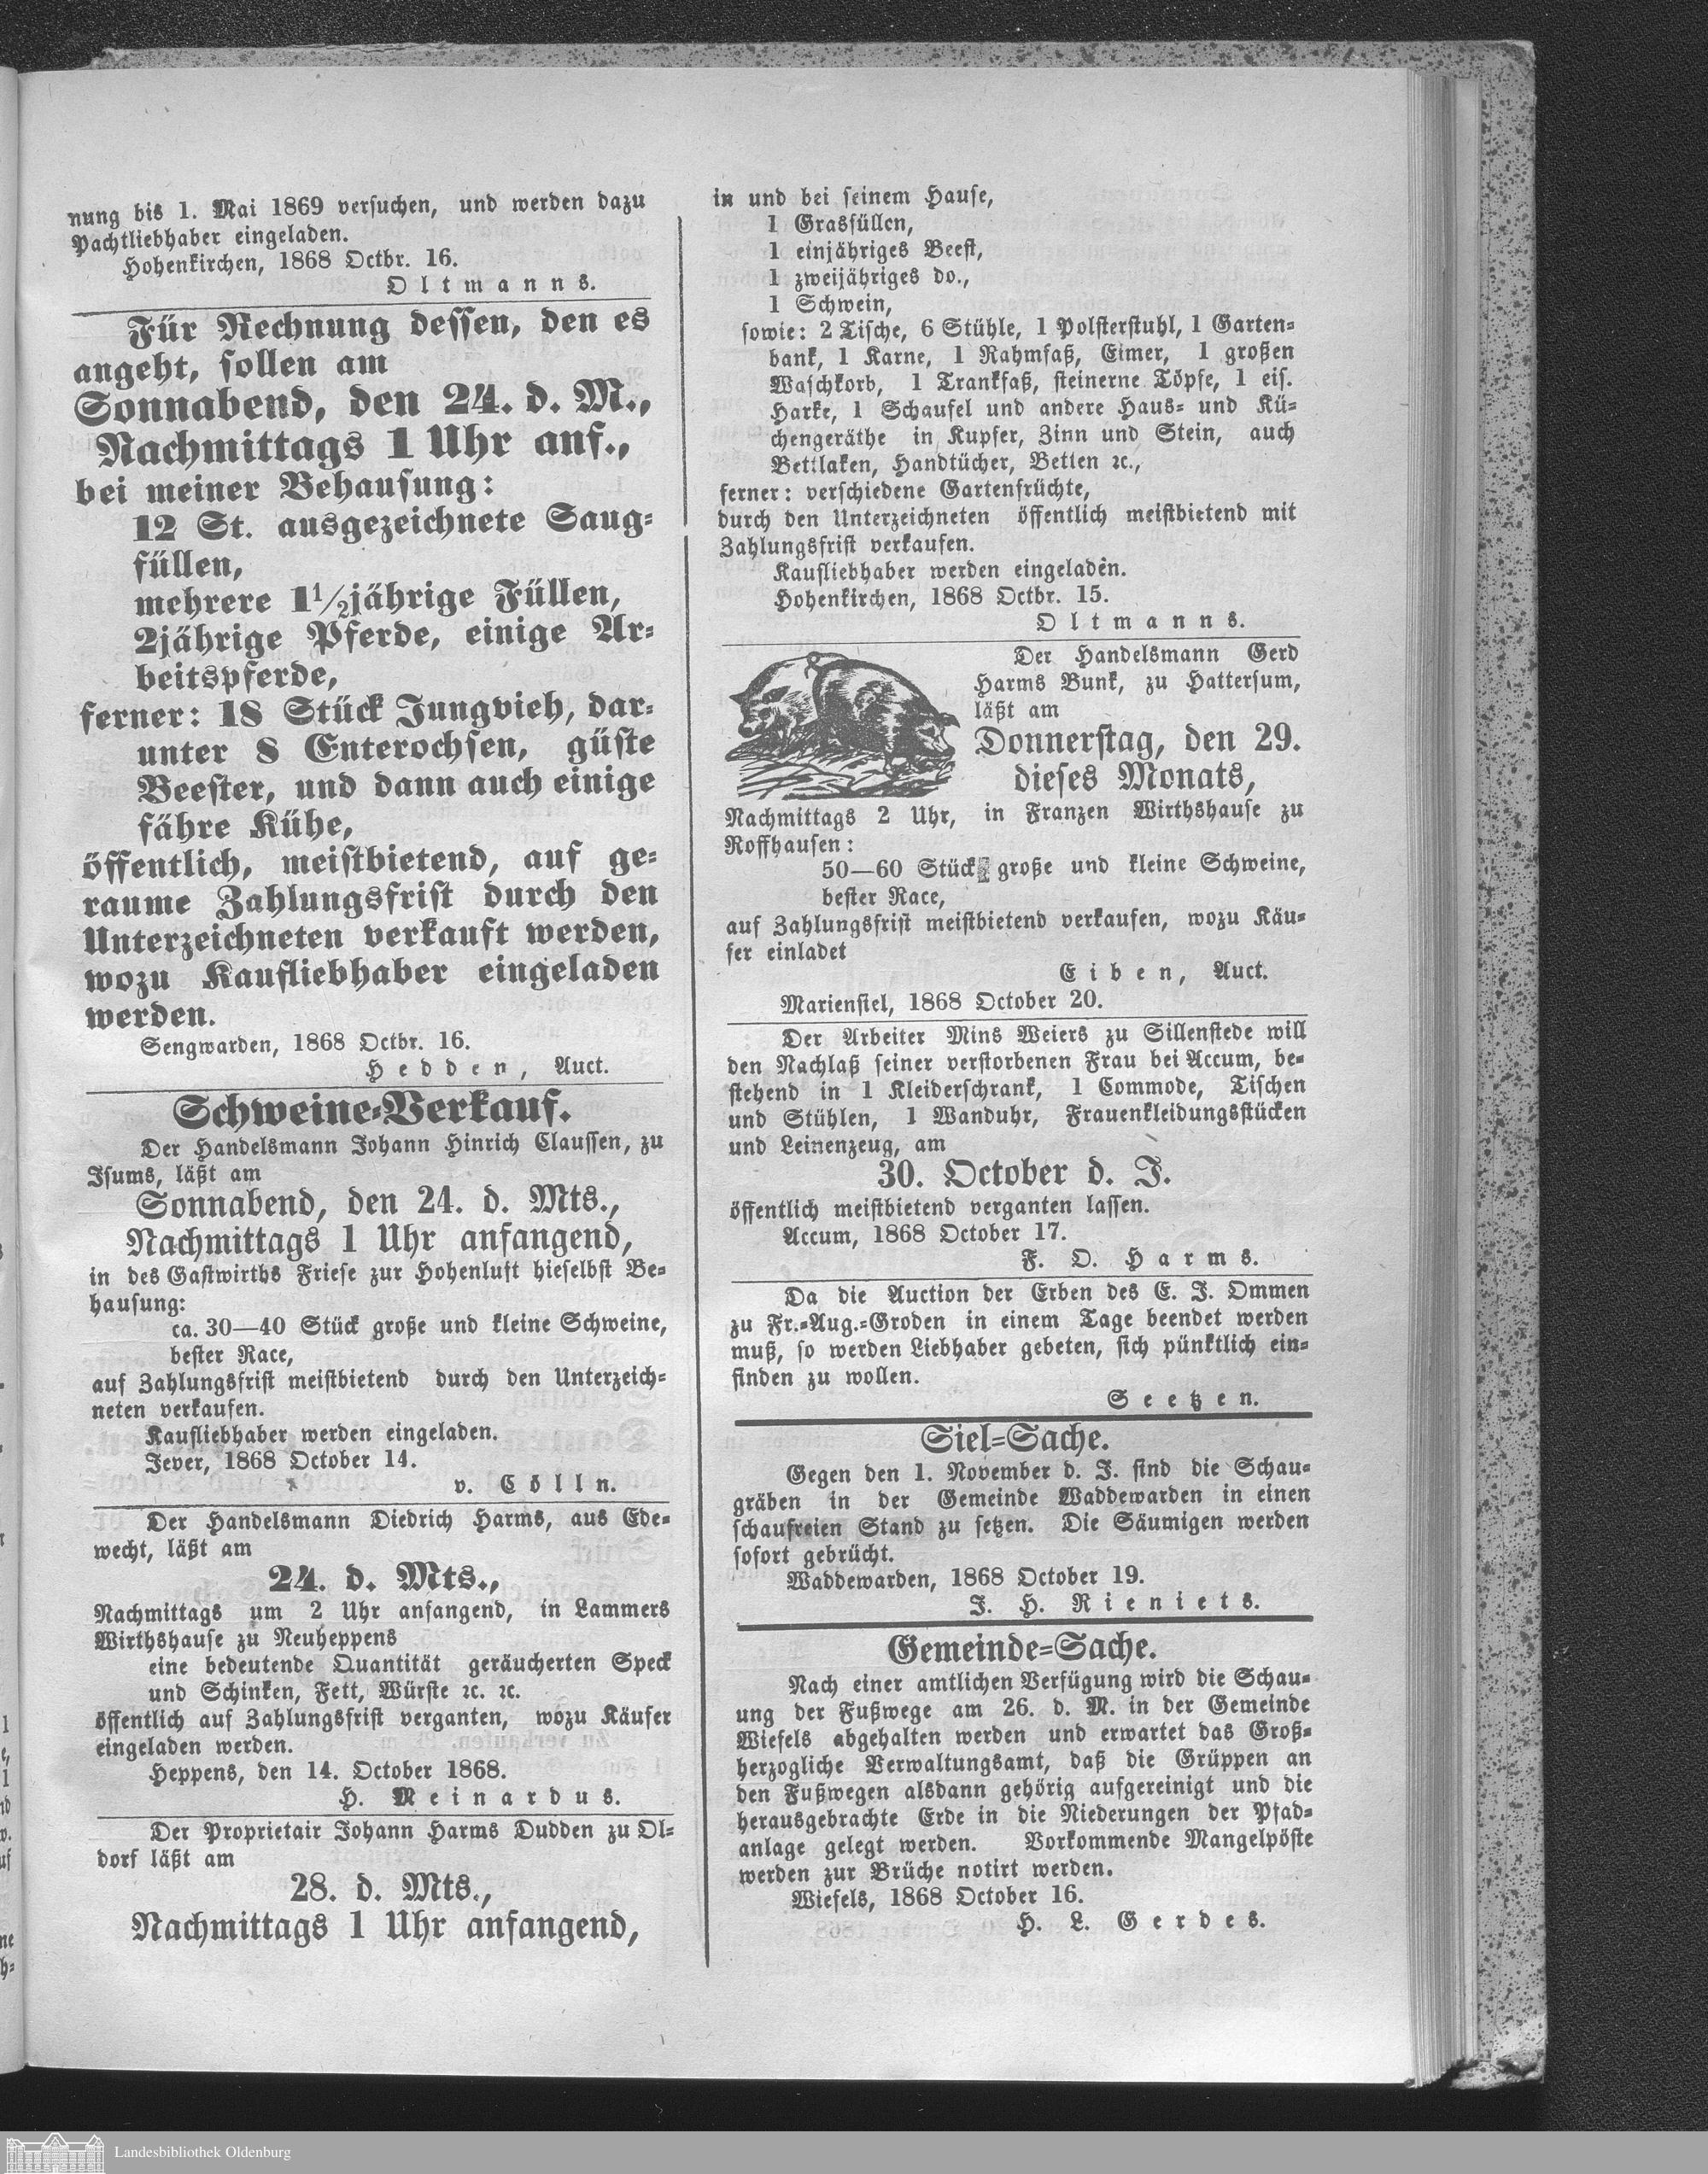 nung bis 1. Mai 1869 versuchen, und werden dazu
Pachtliebhaber eingeladen.
Hohenkirchen, 1868 Octbr. 16.
Oltmanns.
Für Rechnung dessen, den es
angeht, sollen am
Sonnabend, den 24. d. M.,
Nachmittags 1 Uhr anf.,
bei meiner Behausung:
12 St. ausgezeichnete Saug-
füllen,
mehrere 1 1/2jährige Füllen,
2jährige Pferde, einige Ar-
beitspferde,
ferner: 18 Stück Jungvieh, dar-
unter 8 Enterochsen, güste
Beester, und dann auch einige
fähre Kühe,
öffentlich, meistbietend, auf ge-
raume Zahlungsfrist durch den
Unterzeichneten verkauft werden,
wozu Kaufliebhaber eingeladen
werden.
Sengwarden, 1868 Octbr. 16.
Hedden, Auct.
Schweine-Verkauf.
Der Handelsmann Johann Hinrich Claussen, zu
Isums, läßt am
Sonnabend, den 24. d. Mts.,
Nachmittags 1 Uhr anfangend,
in des Gastwirths Friese zur Hohenluft hieselbst Be-
hausung:
ca. 30—40 Stück große und kleine Schweine,
bester Race,
auf Zahlungsfrist meistbietend durch den Unterzeich-
neten verkaufen.
Kaufliebhaber werden eingeladen.
Jever, 1868 October 14.
v. Cölln.
Der Handelsmann Diedrich Harms, aus Ede-
wecht, läßt am
24. d. Mts.,
Nachmittags um 2 Uhr anfangend, in Lammers
Wirthshause zu Neuheppens
eine bedeutende Quantität geräucherten Speck
und Schinken, Fett, Würste ꝛc. ꝛc.
öffentlich auf Zahlungsfrist verganten, wozu Käufer
eingeladen werden.
Heppens, den 14. October 1868.
H. Meinardus.
Der Proprietair Johann Harms Dudden zu Ol-
dorf läßt am
28. d. Mts.,
Nachmittags 1 Uhr anfangend,
in und bei seinem Hause,
1 Grasfüllen,
1 einjähriges Beest,
1 zweijähriges do.,
1 Schwein,
sowie: 2 Tische, 6 Stühle, 1 Polsterstuhl, 1 Garten-
bank, 1 Karne, 1 Rahmfaß, Eimer, 1 großen
Waschkorb, 1 Trankfaß, steinerne Töpfe, 1 eis.
Harke, 1 Schaufel und andere Haus- und Kü-
chengeräthe in Kupfer, Zinn und Stein, auch
Bettlaken, Handtücher, Betten ꝛc.,
ferner: verschiedene Gartenfrüchte,
durch den Unterzeichneten öffentlich meistbietend mit
Zahlungsfrist verkaufen.
Kaufliebhaber werden eingeladen.
Hohenkirchen, 1868 Octbr. 15.
Oltmanns.
Der Handelsmann Gerd
Harms Bunk, zu Hattersum,
läßt am
Donnerstag, den 29.
dieses Monats,
Nachmittags 2 Uhr, in Franzen Wirthshause zu
Roffhausen:
50—60 Stück große und kleine Schweine,
bester Race,
auf Zahlungsfrist meistbietend verkaufen, wozu Käu-
fer einladet
Eiben, Auct.
Mariensiel, 1868 October 20.
Der Arbeiter Mins Weiers zu Sillenstede will
den Nachlaß seiner verstorbenen Frau bei Accum, be-
stehend in 1 Kleiderschrank, 1 Commode, Tischen
und Stühlen, 1 Wanduhr, Frauenkleidungsstücken
und Leinenzeug, am
30. October d. J.
öffentlich meistbietend verganten lassen.
Accum, 1868 October 17.
F. O. Harms.
Da die Auction der Erben des E. J. Ommen
zu Fr.-Aug.-Groden in einem Tage beendet werden
muß, so werden Liebhaber gebeten, sich pünktlich ein-
finden zu wollen.
Seetzen.
Siel-Sache.
Gegen den 1. November d. J. sind die Schau-
gräben in der Gemeinde Waddewarden in einen
schaufreien Stand zu setzen. Die Säumigen werden
sofort gebrücht.
Waddewarden, 1868 October 19.
J. H. Rieniets.
Gemeinde-Sache.
Nach einer amtlichen Verfügung wird die Schau-
ung der Fußwege am 26. d. M. in der Gemeinde
Wiefels abgehalten werden und erwartet das Groß-
herzogliche Verwaltungsamt, daß die Grüppen an
den Fußwegen alsdann gehörig aufgereinigt und die
herausgebrachte Erde in die Niederungen der Pfad-
anlage gelegt werden. Vorkommende Mangelpöste
werden zur Brüche notirt werden.
Wiefels, 1868 October 16.
H. L. Gerdes.
Landesbibliothek Oldenburg